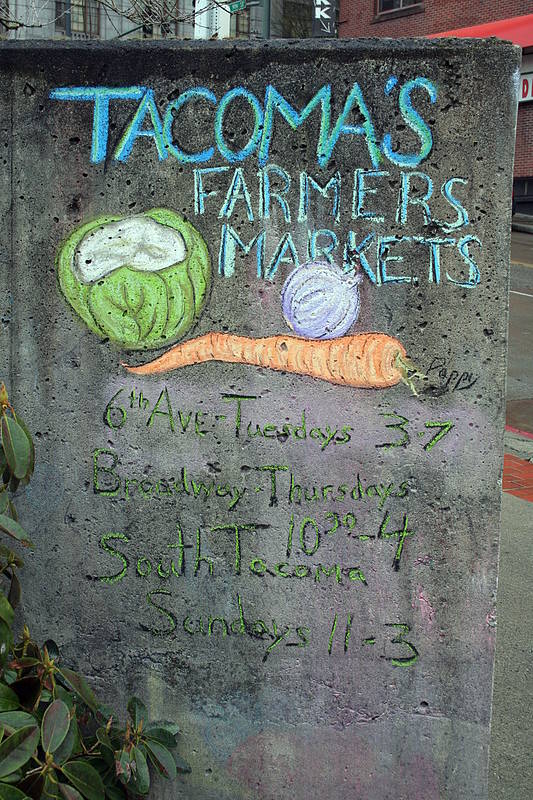 TACOMA'S
FARMERS
MARKETS
Poppy
6th AVE-Tuesdays 3-7
Broadway-Thursdays
10³⁰-4
South Tacoma
Sundays 11-3